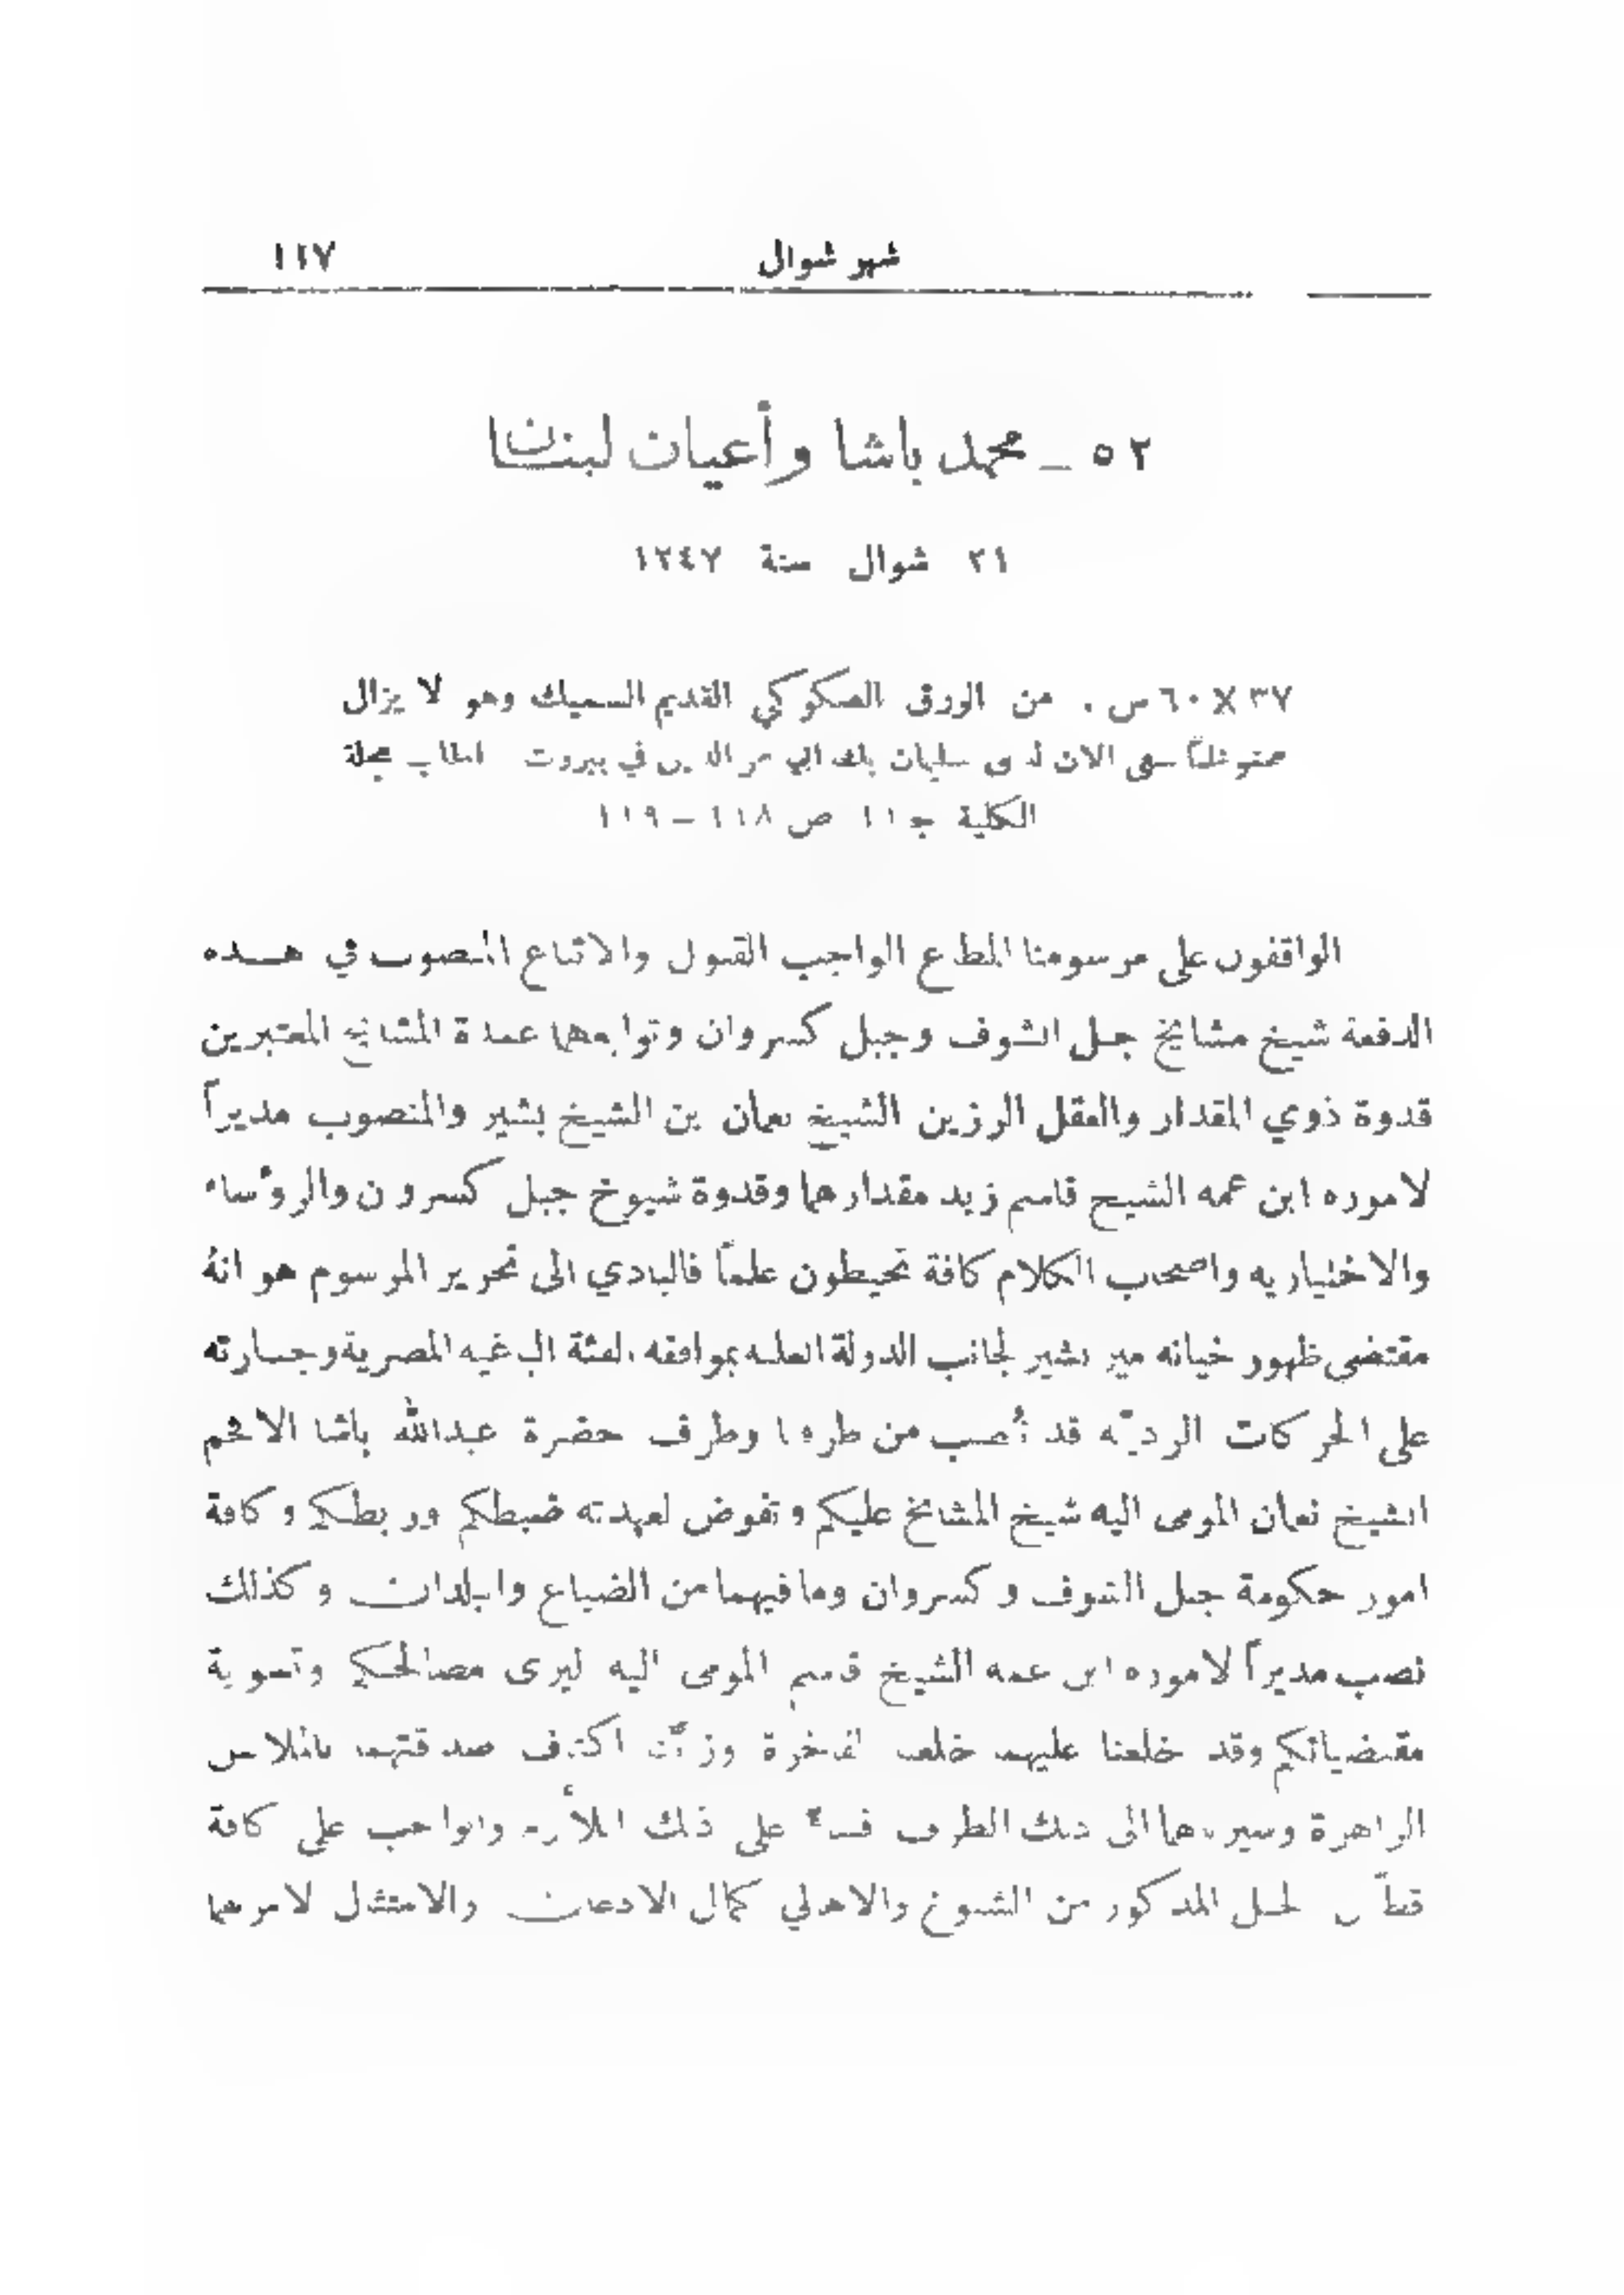 شهر شوال ١١٧
٥٢ _ محمد باشا وأعيان لبنان
٢١ شوال سنة ١٢٤٧
٣٧ X ٦٠ س . من الورق الصكوكي القديم السميك وهو لا يزال
محفوظاً حتى الان لدى سليمان بك ابي عز الدين في بيروت اطلب مجلة
الكلية ج ١١ ص ١١٨ – ١١٩
الواقفون على مرسومنا المطاع الواجب القبول والاتباع المنصوب في هـــذه
الدفعة شيخ مشايخ جبل الشوف وجبل كسروان وتوابعها عمدة المشايخ المعتبرين
قدوة ذوي المقدار والعقل الرزين الشيخ نعمان بن الشيخ بشير والمنصوب مديراً
لاموره ابن عمه الشيخ قاسم زيد مقدارهما وقدوة شيوخ جبل كسروان والرؤساء
والاختياريه واصحاب الكلام كافة تحيطون علماً فالبادي الى تحرير المرسوم هو انهُ
مقتضى ظهور خيانه مير بشير لجانب الدولة العليه بموافقه الفئة الباغيه المصرية وجسارته
على الحركات الرديّه قد نُصب من طرفنا وطرف حضرة عبدالله باشا الافخم
الشيخ نعمان المومى اليه شيخ المشايخ عليكم وتفوض لعهدته ضبطكم وربطكم وكافة
امور حكومة جبل الشوف وكسروان وما فيهما من الضياع والبلدان وكذلك
نصب مديراً لاموره ابن عمه الشيخ قاسم المومى اليه ليرى مصالحكم وتسوية
مقتضياتكم وقد خلعنا عليهما خلعنا الفاخرة اكتاف صداقتهما بالملابس
الزاهرة وسيرناهما الى ذلك الطرف على ذلك والواجب على كافة
الجبل المذكور من الشيوخ والاهالي كمال الاذعان والامتثال لامرهما